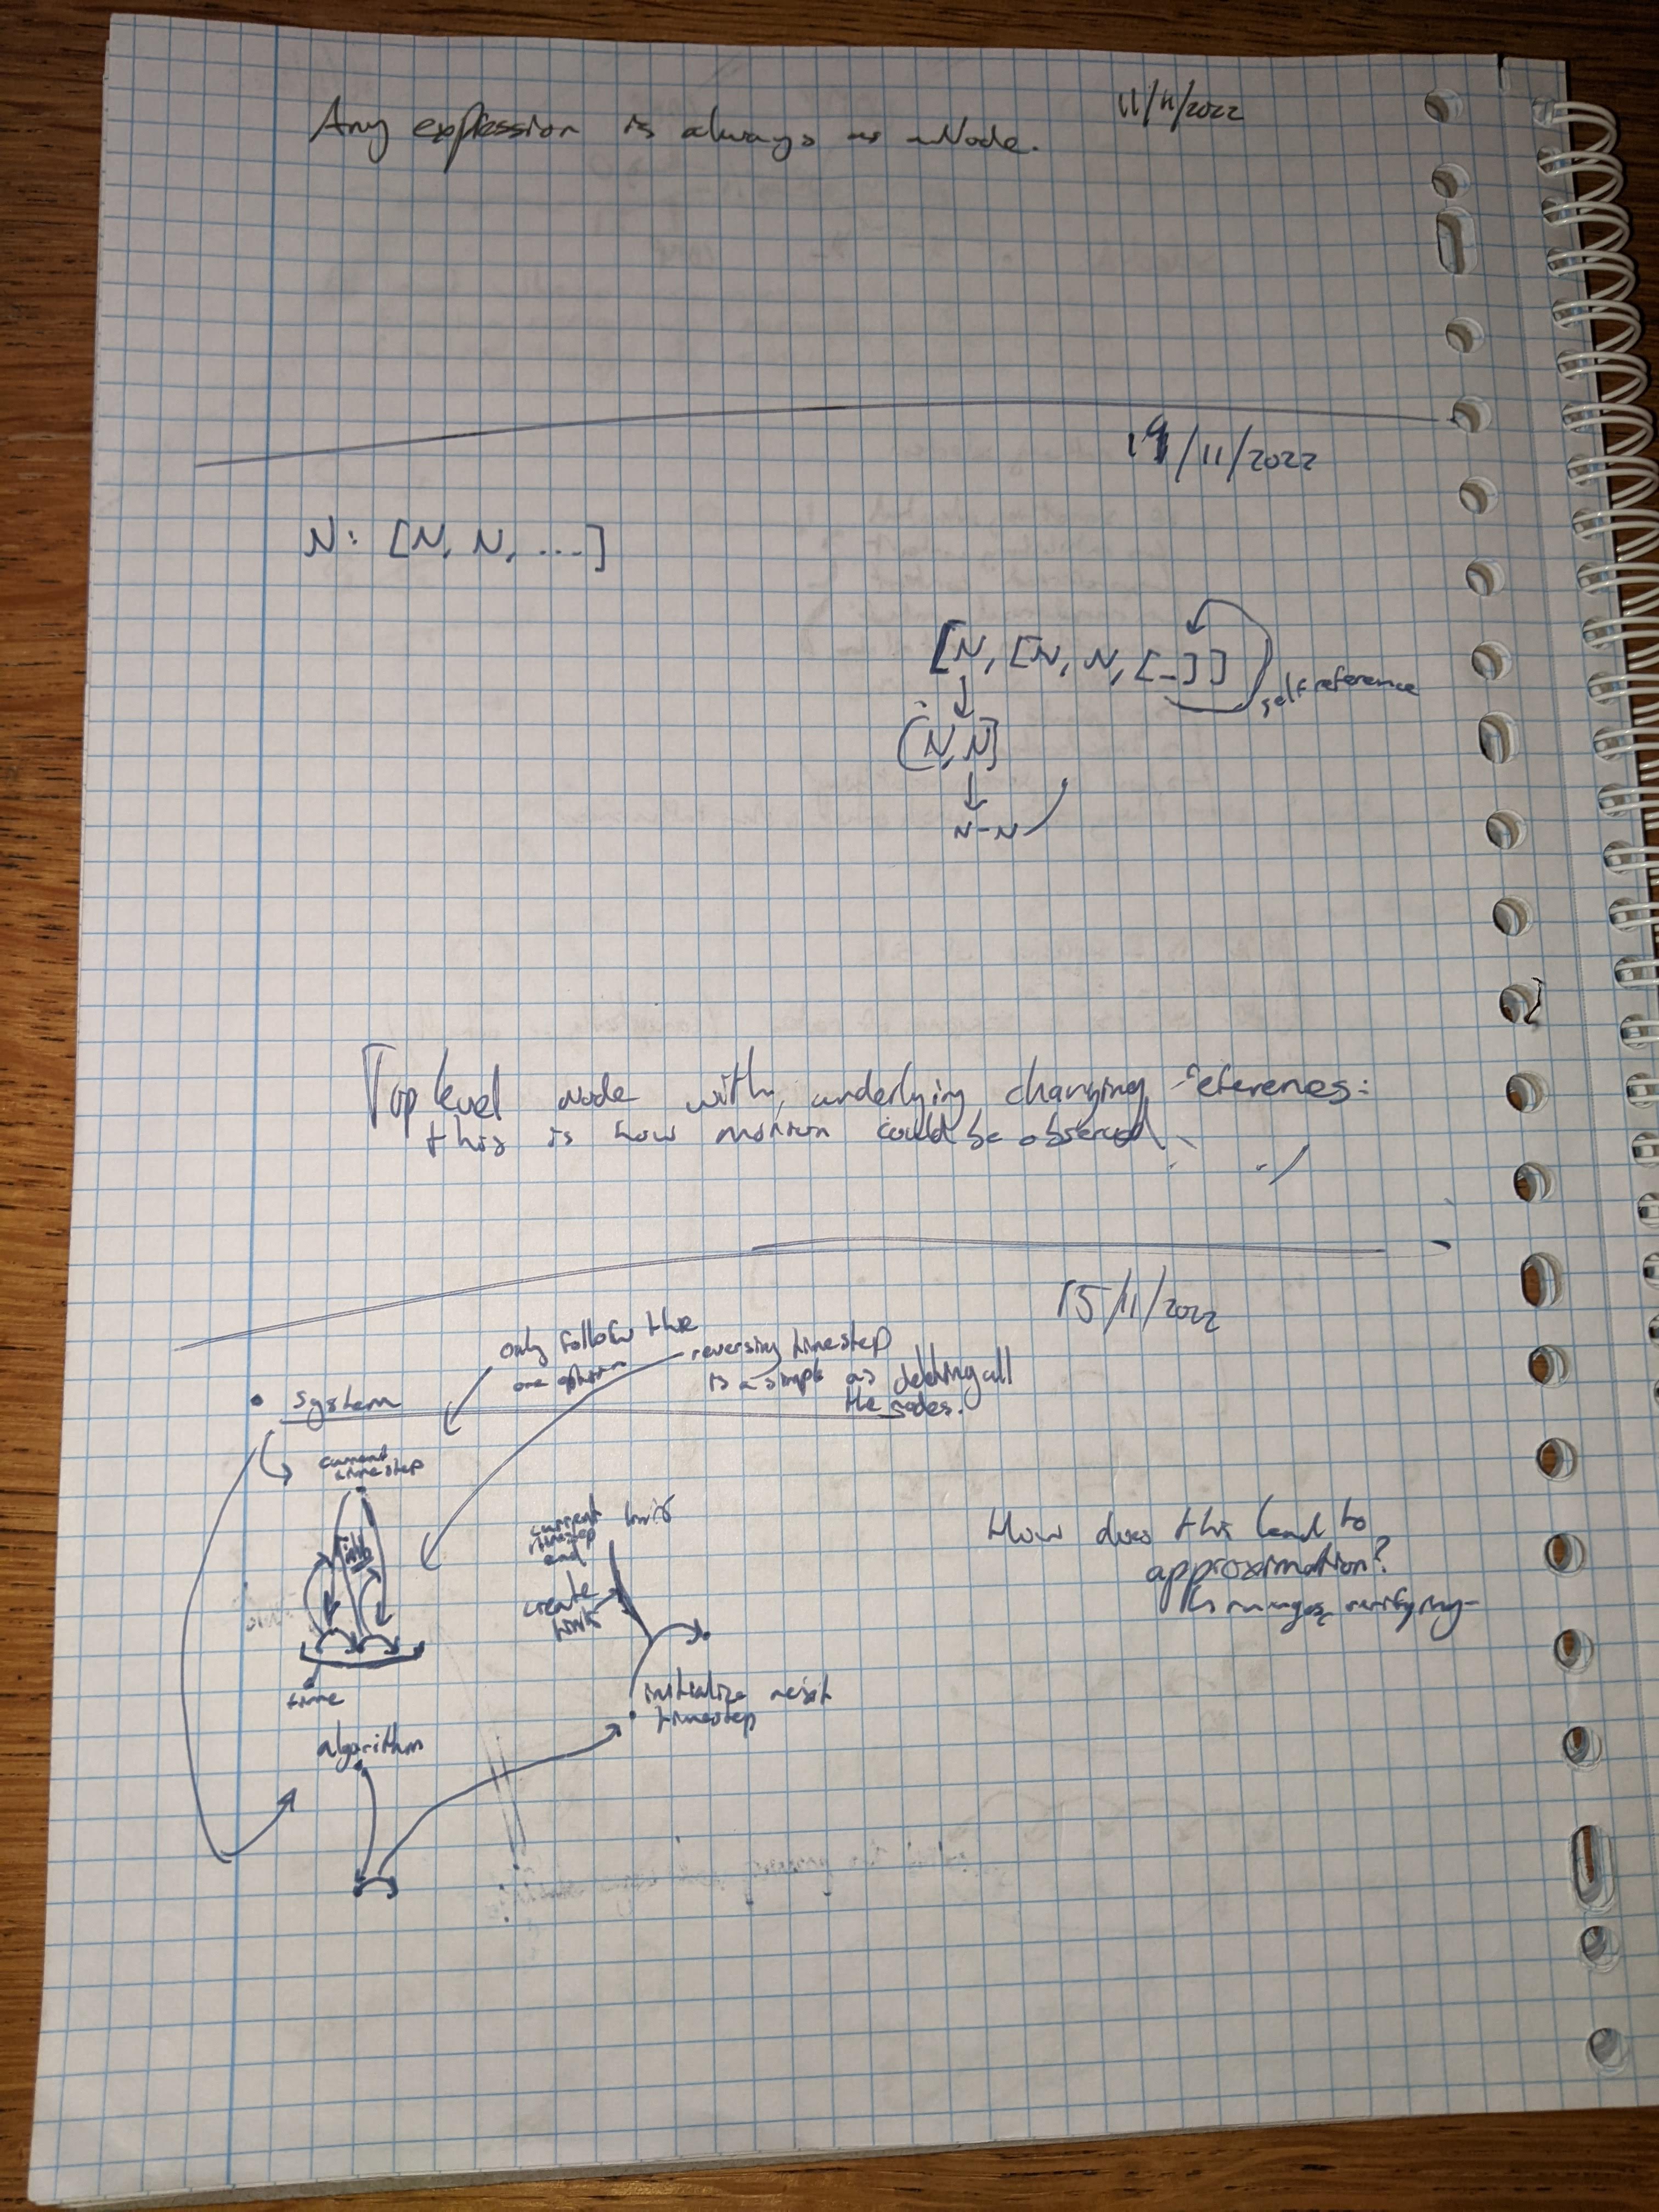 11/11/2022
Any expression is always as a Node.
19/11/2022
N: [N, N, ...]
[N, [N, N, [_]]]
self reference
[N, N]
N-N
Top level Node with underlying changing references:
this is how motion could be observed
15/11/2022
only follow the
one option
reversing timestep
is a simple as deleting all
the nodes.
• system
current
timestep
links
time
algorithm
current
timestep
end
create
links
initialize next
timestep
How does this lead to
approximation?